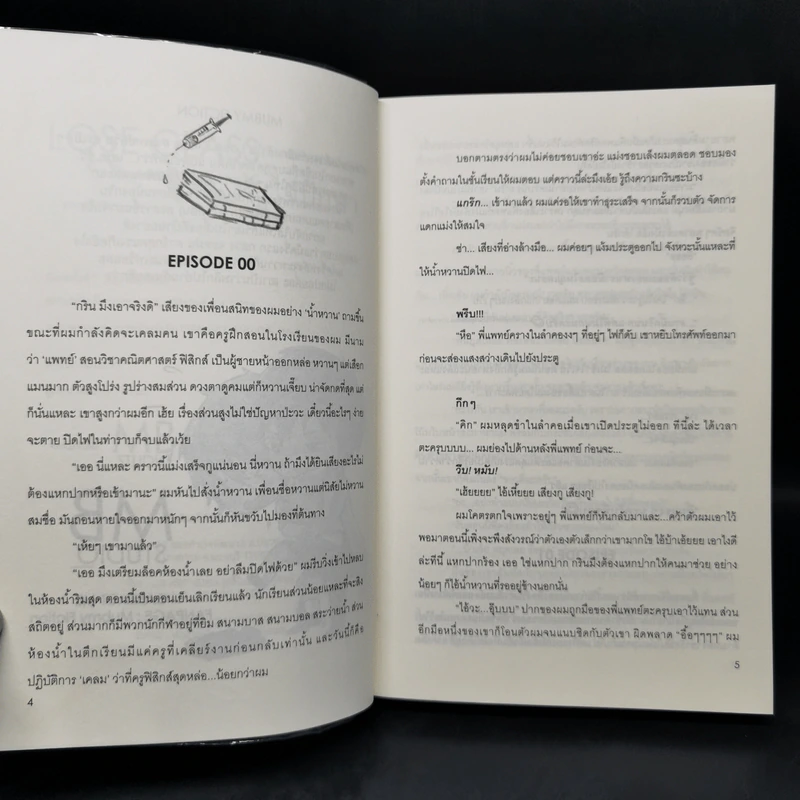 EPISODE 00
“กริน มึงเอาจริงดิ” เสียงของเพื่อนสนิทของผมอย่าง ‘น้ำหวาน’ ถามขึ้น
ขณะที่ผมกำลังคิดจะเคลมคน เขาคือครูฝึกสอนในโรงเรียนของผม มีนาม
ว่า ‘แพทย์’ สอนวิชาคณิตศาสตร์ ฟิสิกส์ เป็นผู้ชายหน้าออกหล่อ หวานๆ แต่เสือก
แมนมาก ตัวสูงโปร่ง รูปร่างสมส่วน ดวงตาดูคมแต่ก็หวานเจี๊ยบ น่าจัดกดที่สุด แต่
ก็นั่นแหละ เขาสูงกว่าผมอีก เฮ้ย เรื่องส่วนสูงไม่ใช่ปัญหาป่ะวะ เดี๋ยวนี้อะไรๆ ง่าย
จะตาย ปิดไฟในท่าราบก็จบแล้วเว้ย
“เออ นี่แหละ คราวนี้แม่งเสร็จกูแน่นอน นี่หวาน ถ้ามึงได้ยินเสียงอะไรไม่
ต้องแหกปากหรือเข้ามานะ” ผมหันไปสั่งน้ำหวาน เพื่อนชื่อหวานแต่นิสัยไม่หวาน
สมชื่อ มันถอนหายใจออกมาหนักๆ จากนั้นก็หันขวับไปมองที่ต้นทาง
“เห้ยๆ เขามาแล้ว”
“เออ มึงเตรียมล็อคห้องน้ำเลย อย่าลืมปิดไฟด้วย” ผมรีบวิ่งเข้าไปหลบ
ในห้องน้ำริมสุด ตอนนี้เป็นตอนเย็นเลิกเรียนแล้ว นักเรียนส่วนน้อยแหละที่จะสิง
สถิตอยู่ ส่วนมากก็มีพวกนักกีฬาอยู่ที่ยิม สนามบาส สนามบอล สระว่ายน้ำ ส่วน
ห้องน้ำในตึกเรียนมีแค่ครูที่เคลียร์งานก่อนกลับเท่านั้น และวันนี้ก็คือ
ปฏิบัติการ ‘เคลม’ ว่าที่ครูฟิสิกส์สุดหล่อ...น้อยกว่าผม
4
บอกตามตรงว่าผมไม่ค่อยชอบเขาอ่ะ แม่งชอบเล็งผมตลอด ชอบมอง
ตั้งคำถามในชั้นเรียนให้ผมตอบ แต่คราวนี้ล่ะมึงเอ้ย รู้ถึงความกรินซะบ้าง
แกร๊ก... เข้ามาแล้ว ผมแค่รอให้เขาทำธุระเสร็จ จากนั้นก็รวบตัว จัดการ
แดกแม่งให้สมใจ
ซ่า... เสียงที่อ่างล้างมือ... ผมค่อยๆ แง้มประตูออกไป จังหวะนั้นแหละที่
ให้น้ำหวานปิดไฟ...
พรึบ!!!
“หือ” พี่แพทย์ครางในลำคองงๆ ที่อยู่ๆ ไฟก็ดับ เขาหยิบโทรศัพท์ออกมา
ก่อนจะส่องแสงสว่างเดินไปยังประตู
กึกๆ
“คิก” ผมหลุดขำในลำคอเมื่อเขาเปิดประตูไม่ออก ทีนี้ล่ะ ได้เวลา
ตะครุบบบบ... ผมย่องไปด้านหลังพี่แพทย์ ก่อนจะ...
วืบ! หมับ!
“เฮ้ยยยย” ไอ้เหี้ยยย เสียงกู เสียงกู!
ผมโคตรตกใจเพราะอยู่ๆ พี่แพทย์ก็หันกลับมาและ...คว้าตัวผมเอาไว้
พอมาตอนนี้เพิ่งจะพึงสังวรณ์ว่าตัวเองตัวเล็กกว่าเขามากโข ไอ้บ้าเอ้ยยย เอาไงดี
ล่ะทีนี้ แหกปากร้อง เออ ใช่แหกปาก กรินมึงต้องแหกปากให้คนมาช่วย อย่าง
น้อยๆ ก็ไอ้น้ำหวานที่รออยู่ข้างนอกนั่น
“ไอ้วะ...อุ๊บบบ” ปากของผมถูกมือของพี่แพทย์ตะครุบเอาไว้แทน ส่วน
อีกมือหนึ่งของเขาก็โอนตัวผมจนแนบชิดกับตัวเขา ผิดพลาด “อื้อๆๆๆๆ” ผม
5